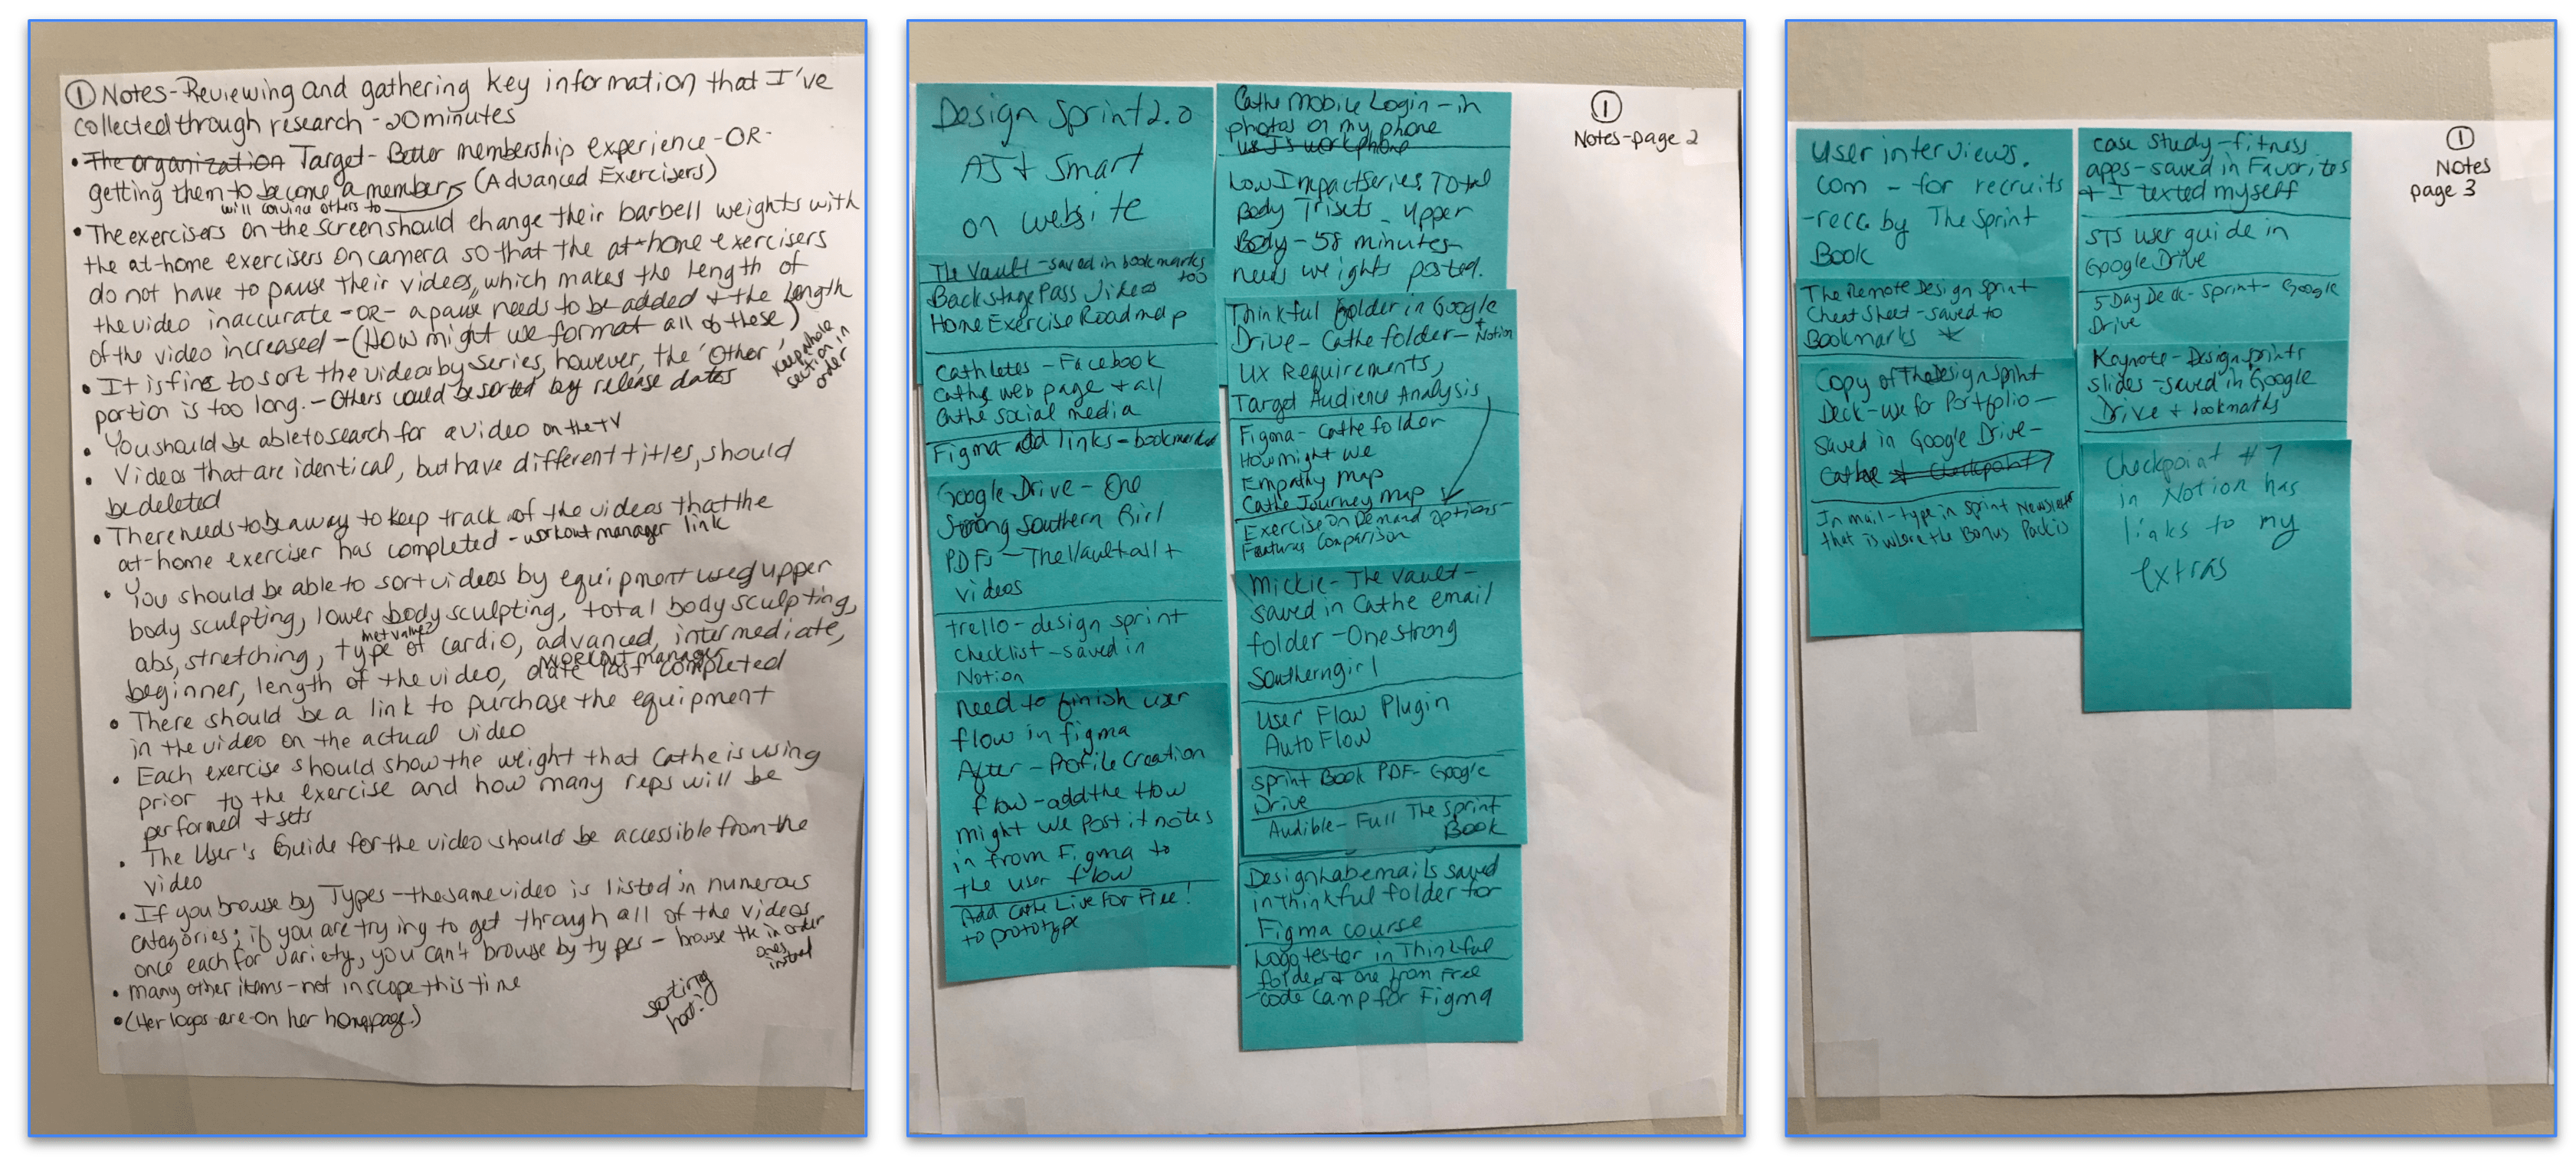 ① Notes-Reviewing and gathering key information that I've
collected through research - 20 minutes
• The organization Target - Better membership experience - OR -
getting them to become a members (Advanced Exercisers)
will convince others to
• The exercisers on the screen should change their barbell weights with
the at-home exercisers on camera so that the at-home exercisers
do not have to pause their videos, which makes the length of
the video inaccurate - OR - a pause needs to be added + the length
of the video increased - (How might we format all of these)
• It is fine to sort the videos by series, however, the "Other"
portion is too long. - Others could be sorted by release dates
keep whole
section in
order
• You should be able to search for a video on the TV
• Videos that are identical, but have different titles, should
be deleted
• There needs to be a way to keep track of the videos that the
at-home exerciser has completed - workout manager link
• You should be able to sort videos by equipment used upper
body sculpting, lower body sculpting, total body sculpting,
met value?
abs, stretching, type of cardio, advanced, intermediate,
workout manager
beginner, length of the video, date last completed
• There should be a link to purchase the equipment
in the video on the actual video
• Each exercise should show the weight that Cathe is using
prior to the exercise and how many reps will be
performed + sets
• The User's Guide for the video should be accessible from the
video
• If you browse by Types - the same video is listed in numerous
categories; if you are trying to get through all of the videos
once each for variety, you can't browse by types - browse the in order
ones
instead
• Many other items - not in scope this time
• (Her logos are on her homepage.)
sorting
hat!
①
Notes-page 2
Design Sprint 2.0
AJ + Smart
on website
The Vault - saved in bookmarks
too
Backstage Pass Videos
Home Exercise Roadmap
Cathletes - Facebook
Cathe web page + all
Cathe social media
Figma add links - bookmarked
Google Drive - One
Strong Southern Girl
PDFs - The Vault all +
videos
trello - design sprint
checklist - saved in
Notion
need to finish user
flow in figma
After - Profile Creation
flow - add the How
might we post it notes
in from Figma to
the user flow
Add Cathe Live For Free!
to prototype
Cathe Mobile Login - in
photos on my phone
use J's work phone
Low Impact Series Total
Body Trisets - Upper
Body - 58 minutes -
needs weights posted.
Thinkful folder in Google
Drive - Cathe folder - + Notion
UX Requirements,
Target Audience Analysis
Figma - Cathe folder
How might we
Empathy map
Cathe Journey map
Exercise on Demand options -
Features Comparison
Mickie - The Vault -
saved in Cathe email
folder - One strong
Southerngirl
User Flow Plugin
Auto Flow
Sprint Book PDF - Google
Drive
Audible - Full The Sprint
Book
Designlab emails saved
in thinkful folder for
Figma course
Logo tester in Thinkful
folder + one from Free
code Camp for Figma
①
Notes
page 3
User interviews.
com - for recruits
- rec. by The Sprint
Book
The Remote Design Sprint
Cheat Sheet - saved to
Bookmarks *
Copy of The Design Sprint
Deck - use for Portfolio -
saved in Google Drive -
Cathe + Checkpoint 7
In mail - type in Sprint Newsletter
that is where the Bonus Pack is
case study - fitness
apps - saved in Favorites
+ I texted myself
STS user guide in
Google Drive
5 Day Deck - Sprint - Google
Drive
Keynote - Design sprints
slides - saved in Google
Drive + bookmarks
Checkpoint #7
in Notion has
links to my
extras